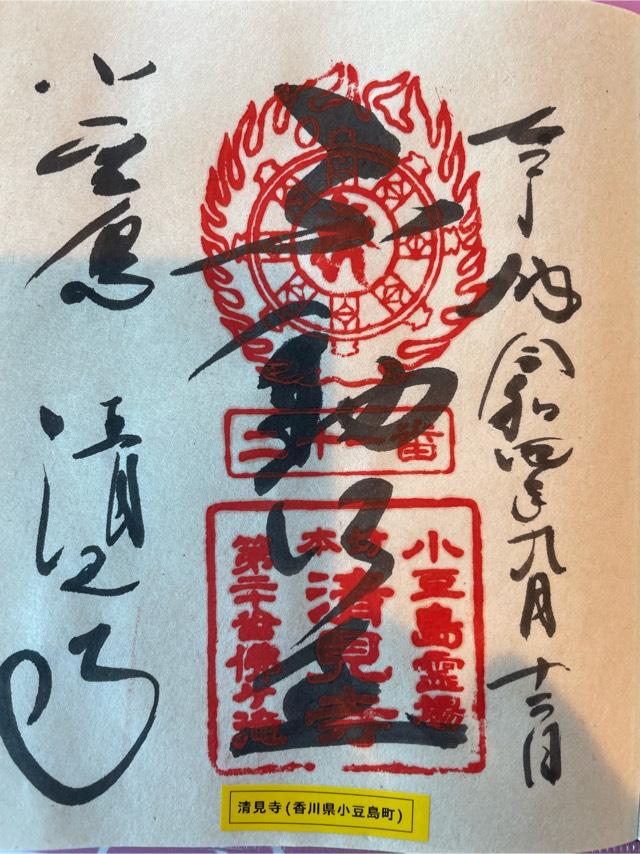 奉納 令和四年九月十六日
不動明王
小豆島 清見寺
二十一番
小豆島霊場
本坊 清見寺
第二十番佛ヶ滝
清見寺(香川県小豆島町)